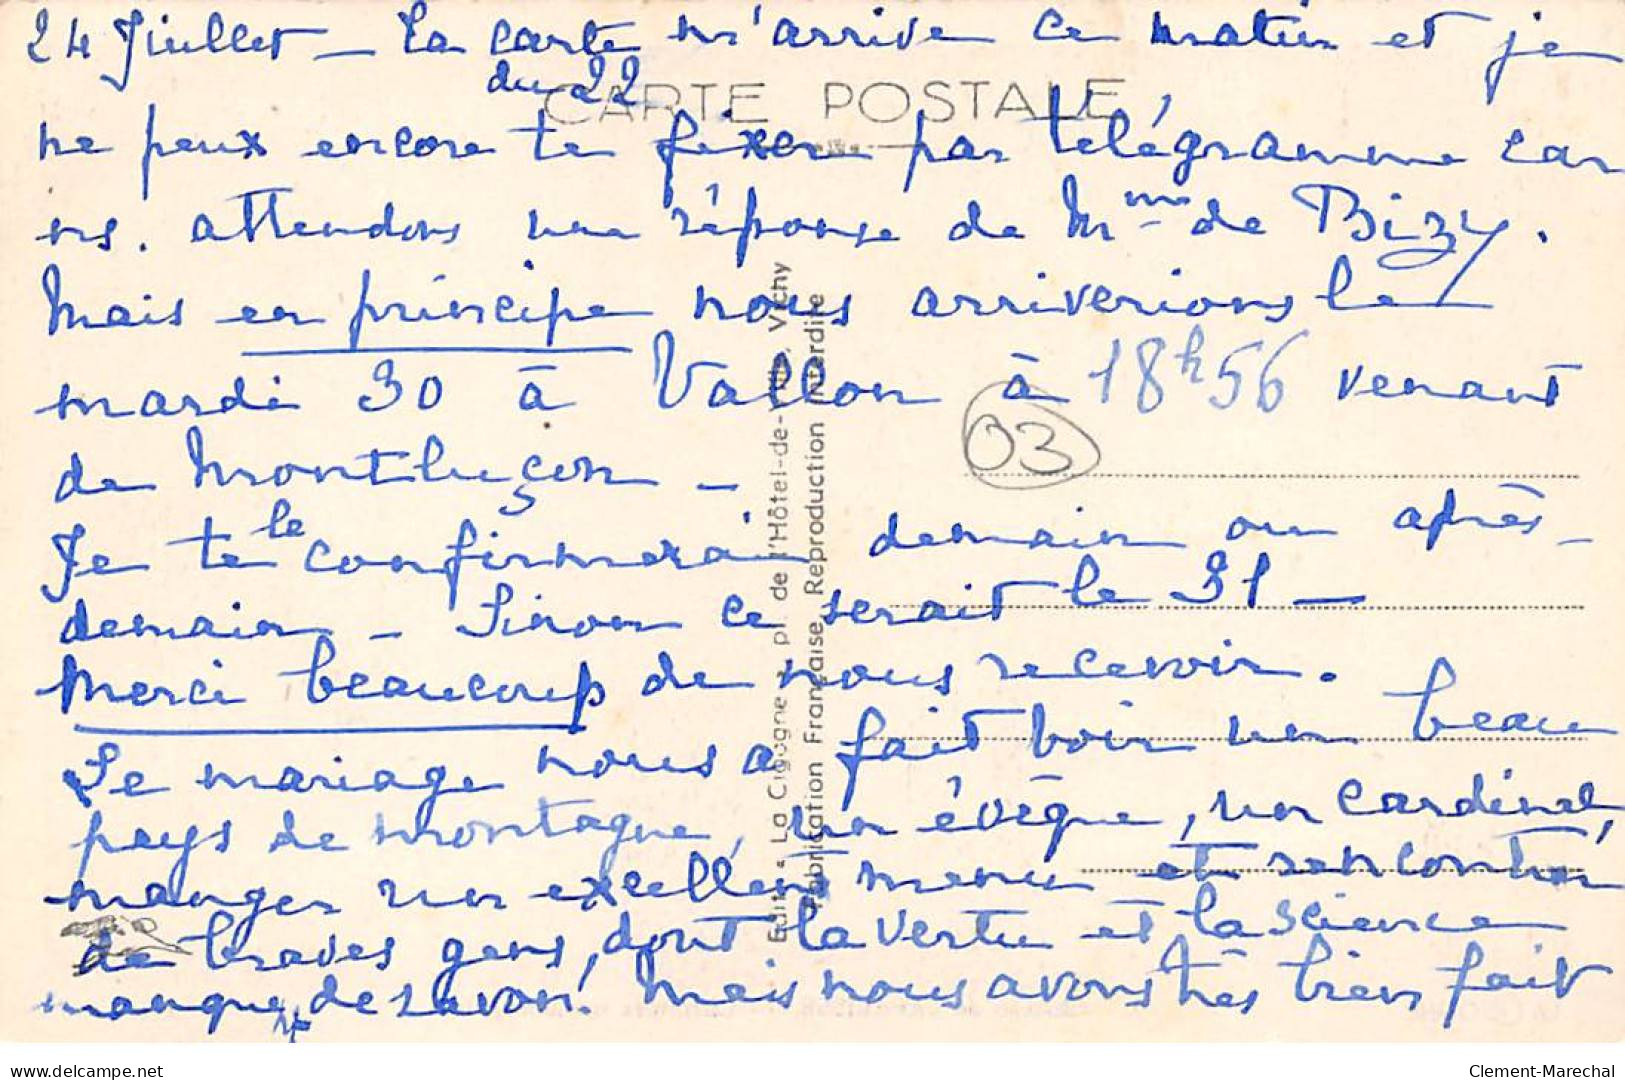 24 Juillet – Ta carte m'arrive ce matin et je
du 22
CARTE POSTALE
ne peux encore te fixer par télégramme car
ns. attendons une réponse de Mme de Bizy.
Mais en principe nous arriverions le
mardi 30 à Vallon à 18h56 venant
03
de Montluçon –
Je te le confirmerai demain ou après-
demain – Sinon ce serait le 31 –
Merci beaucoup de nous recevoir.
Le mariage nous a fait voir un beau
pays de montagne, un évêque, un cardinal,
manger un excellent menu et rencontrer
de braves gens, dont la vertu et la science
manquent de savon! Mais nous avons très bien fait
Edit. La Cigogne - pl. de l'Hôtel-de-Ville, Vichy
Fabrication Française. Reproduction interdite
www.delcampe.net
Clement-Marechal